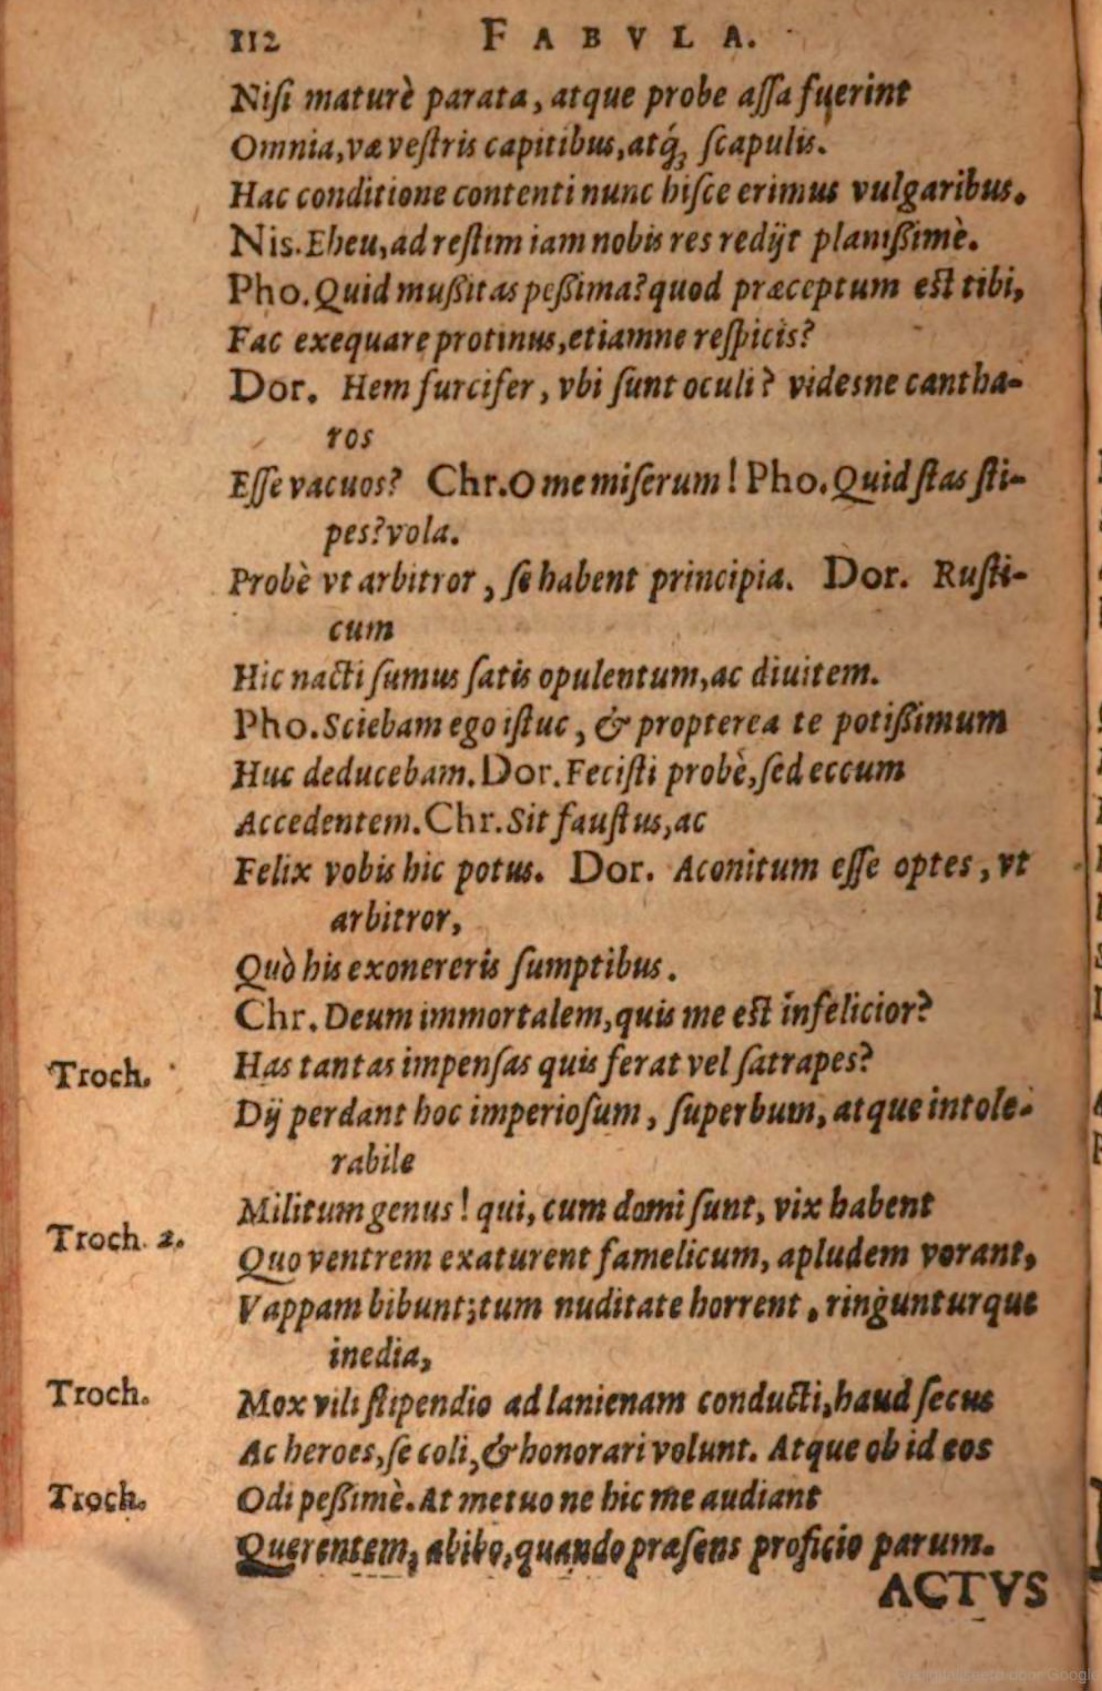 112 FABVLA.
Niſi maturè parata, atque probe aſſa fuerint
Omnia, væ veſtris capitibus, atq́; ſcapulis.
Hac conditione contenti nunc hiſce erimus vulgaribus.
Nis. Eheu, ad reſtim iam nobis res redijt planiſſimè.
Pho. Quid muſſitas peſſima? quod præceptum eſt tibi,
Fac exequare protinus, etiamne reſpicis?
Dor. Hem furcifer, vbi ſunt oculi? videsne cantha-
ros
Eſſe vacuos? Chr. O me miſerum! Pho. Quid ſtas ſti-
pes? vola.
Probè vt arbitror, ſe habent principia. Dor. Ruſti-
cum
Hic nacti ſumus ſatis opulentum, ac diuitem.
Pho. Sciebam ego iſtuc, & propterea te potiſſimum
Huc deducebam. Dor. Feciſti probè, ſed eccum
Accedentem. Chr. Sit fauſtus, ac
Felix vobis hic potus. Dor. Aconitum eſſe optes, vt
arbitror,
Quò his exonereris ſumptibus.
Chr. Deum immortalem, quis me eſt infelicior?
Troch. Has tantas impenſas quis ferat vel ſatrapes?
Dij perdant hoc imperioſum, ſuperbum, atque intole-
rabile
Militum genus! qui, cum domi ſunt, vix habent
Troch. 2. Quo ventrem exaturent famelicum, apludem vorant,
Vappam bibunt; tum nuditate horrent, ringunturque
inedia,
Troch. Mox vili ſtipendio ad lanienam conducti, haud ſecus
Ac heroes, ſe coli, & honorari volunt. Atque ob id eos
Troch. Odi peſſimè. At metuo ne hic me audiant
Querentem, abibo, quando præſens proficio parum.
ACTVS